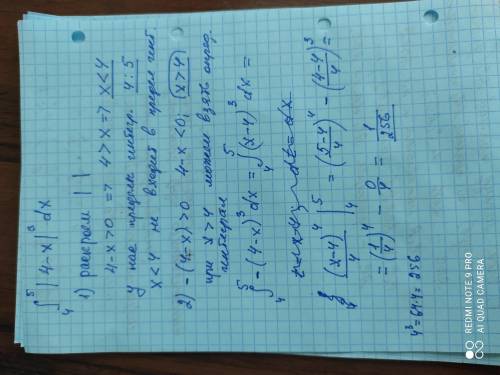 ∫₄⁵ |4-x|³ dx
1) раскроем | |
4-x>0 => 4>x => x<4
у нас пределы интегр. 4 : 5
x<4 не входит в пределы инт.
2) -(4-x)>0 4-x<0, x>4
при x>4 можем взять опред.
интеграл
∫₄⁵ -(4-x)³ dx = ∫₄⁵ (x-4)³ dx =
(x-4)⁴/4 |₄⁵ = (5-4/4)⁴ - (4-4/4)³ =
= (1/4)⁴ - 0/4 = 1/256
4³=64·4=256
REDMI NOTE 9 PRO
AI QUAD CAMERA